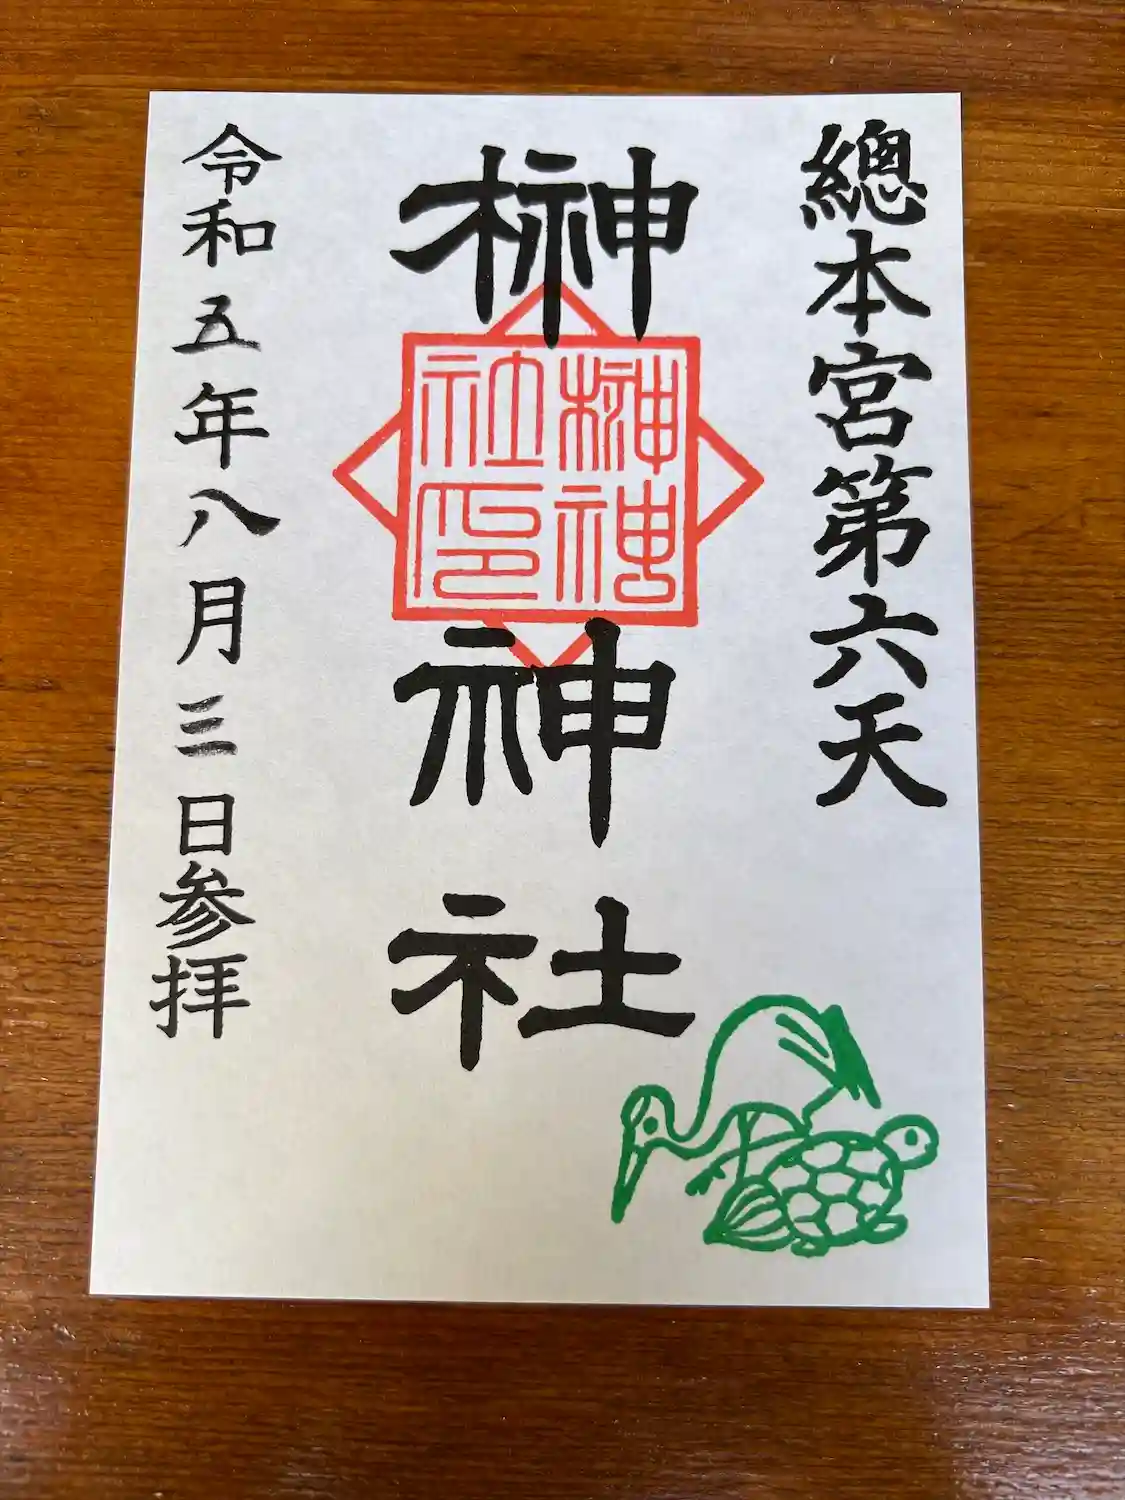 總本宮第六天
榊神社
榊神社印
令和五年八月三日参拝